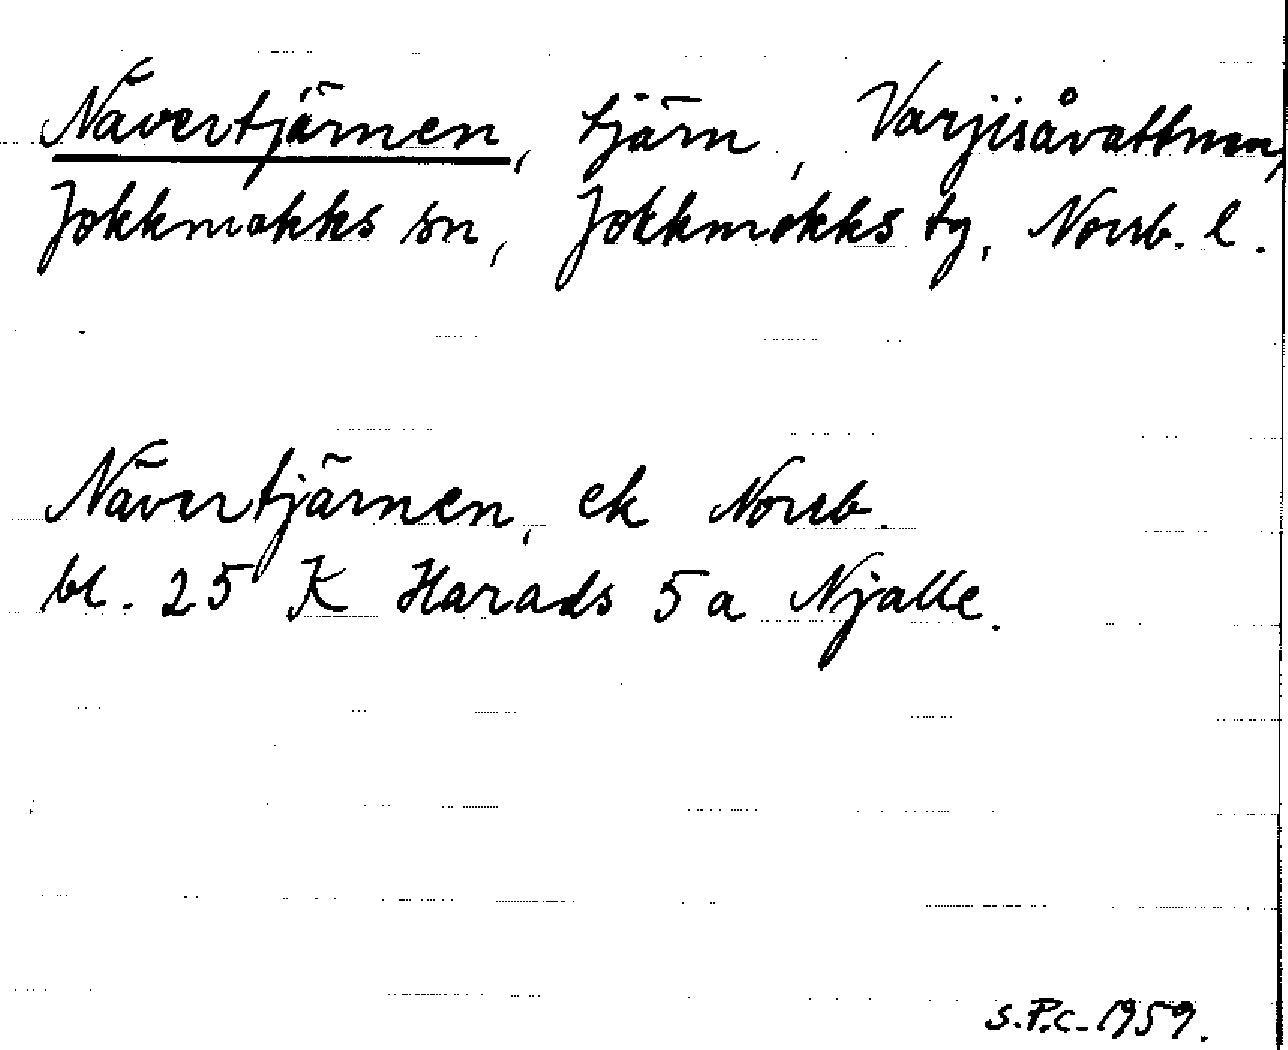 Nävertjärnen, tjärn, Varjisåvattnen,
Jokkmokks sn, Jokkmokks tg, Norrb. l.
Nävertjärnen, ek Norrb.
bl. 25 K Harads 5a Njalle.
S.P.C. 1959.